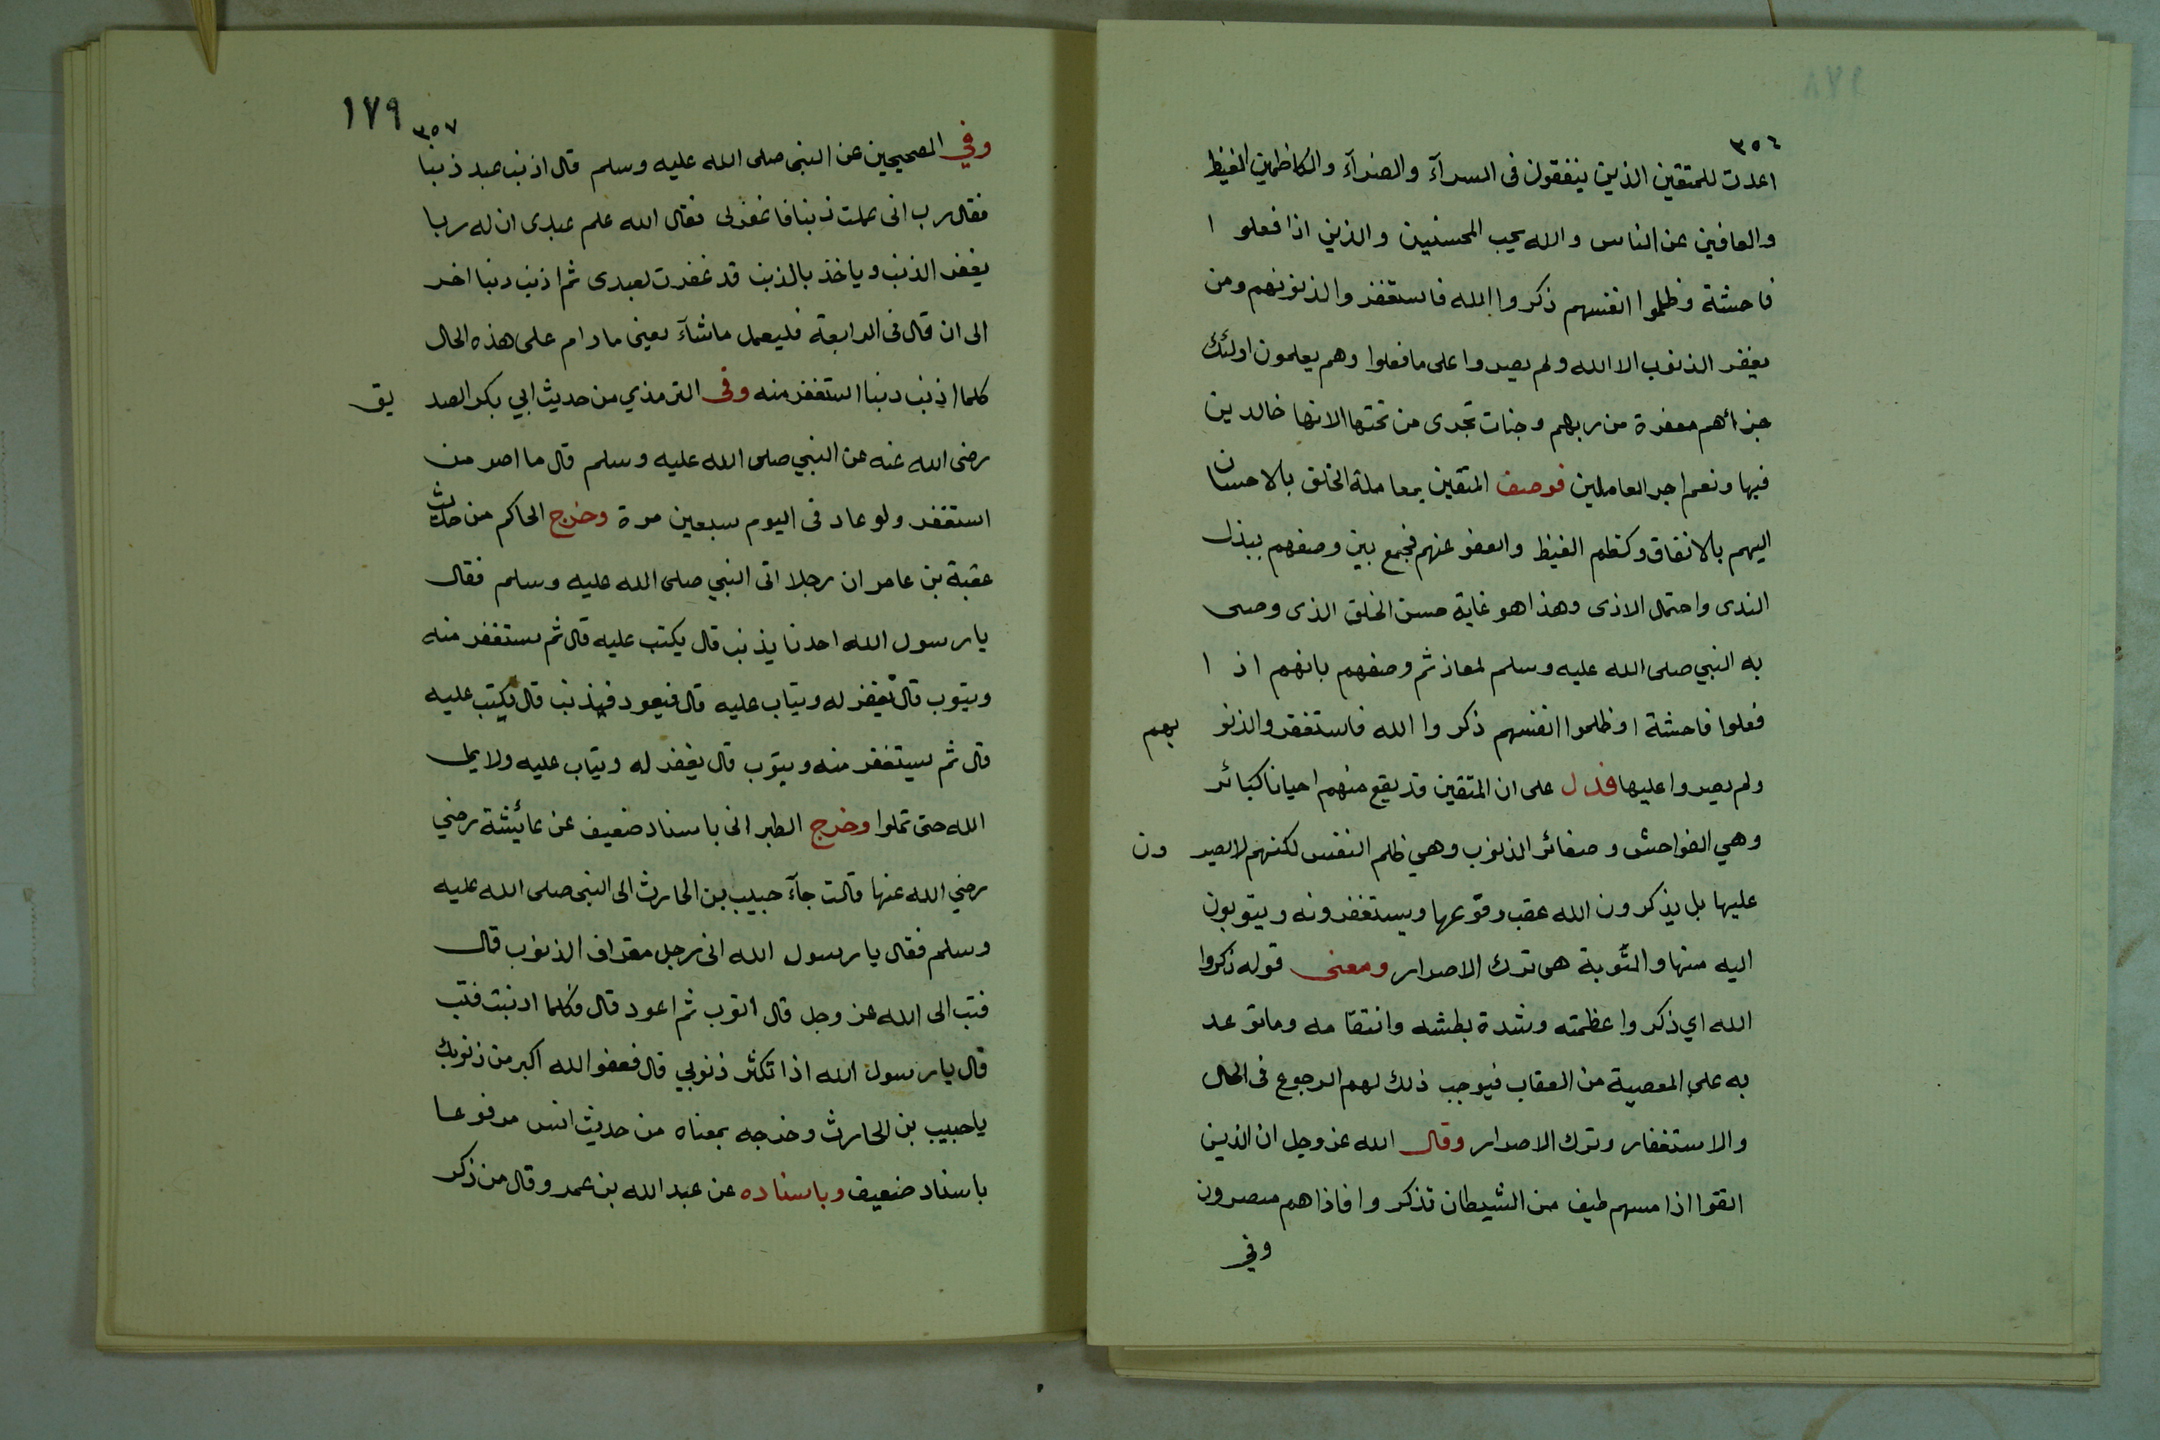 ٣٥٦
اعدت للمتقين الذين ينفقون فى السرآء والضرآء والكاظمين الغيظ
والعافين عن الناس والله يحب المحسنين والذين اذا فعلوا
فاحشة وظلموا انفسهم ذكروا الله فاستغفروا لذنوبهم ومن
يغفر الذنوب الا الله ولم يصروا على ما فعلوا وهم يعلمون اولئك
جزاءهم مغفرة من ربهم وجنات تجرى من تحتها الانها خالدين
فيها ونعم اجر العاملين فوصف المتقين بمعاملة الخلق بالاحسان
اليهم بالانفاق وكظم الغيظ والعفو عنهم فجمع بين وصفهم ببذل
الندى واحتمال الاذى وهذا هو غاية حسن الخلق الذى وصى
به النبي صلى الله عليه وسلم لمعاذ ثم وصفهم بانهم اذا
فعلوا فاحشة او ظلموا انفسهم ذكروا الله فاستغفروا لذنوبهم
ولم يصروا عليها فدل على ان المتقين قد يقع منهم احيانا كبائر
وهي الفواحش وصغائر الذنوب وهي ظلم النفس لكنهم لا يصرون
عليها بل يذكرون الله عقب وقوعها ويستغفرونه ويتوبون
اليه منها والتوبة هى ترك الاصرار ومعنى قوله ذكروا
الله اي ذكروا عظمته وشدة بطشه وانتقامه وما توعد
به على المعصية من العقاب فيوجب ذلك لهم الرجوع فى الحال
والاستغفار وترك الاصرار وقال الله عز وجل ان الذين
اتقوا اذا مسهم طيف من الشيطان تذكروا فاذا هم مبصرون
وفي
١٧٩
٣٥٧
وفي الصحيحين عن النبى صلى الله عليه وسلم قال اذنب عبد ذنبا
فقال رب انى عملت ذنبا فاغفر لى فقال الله علم عبدى ان له ربا
يغفر الذنب وياخذ بالذنب قد غفرت لعبدى ثم اذنب ذنبا اخر
الى ان قال فى الرابعة فليعمل ما شآء يعنى ما دام على هذه الحال
كلما اذنب ذنبا استغفر منه وفى الترمذي من حديث ابي بكر الصديق
رضى الله عنه عن النبي صلى الله عليه وسلم قال ما اصر من
استغفر ولو عاد فى اليوم سبعين مرة وخرج الحاكم من حديث
عقبة بن عامر ان رجلا اتى النبي صلى الله عليه وسلم فقال
يا رسول الله احدنا يذنب قال يكتب عليه قال ثم يستغفر منه
ويتوب قال يغفر له ويتاب عليه قال فيعود فيذنب قال يكتب عليه
قال ثم يستغفر منه ويتوب قال يغفر له ويتاب عليه ولا يمل
الله حتى تملوا وخرج الطبرانى باسناد ضعيف عن عائيشة رضي
رضي الله عنها قالت جآء حبيب بن الحارث الى النبى صلى الله عليه
وسلم فقال يا رسول الله انى رجل مقراف الذنوب قال
فتب الى الله عز وجل قال اتوب ثم اعود قال فكلما اذنبت فتب
قال يا رسول الله اذا تكثر ذنوبي قال فعفو الله اكبر من ذنوبك
يا حبيب بن الحارث وخرجه بمعناه من حديث انس مرفوعا
باسناد ضعيف وباسناده عن عبد الله بن عمر وقال من ذكر